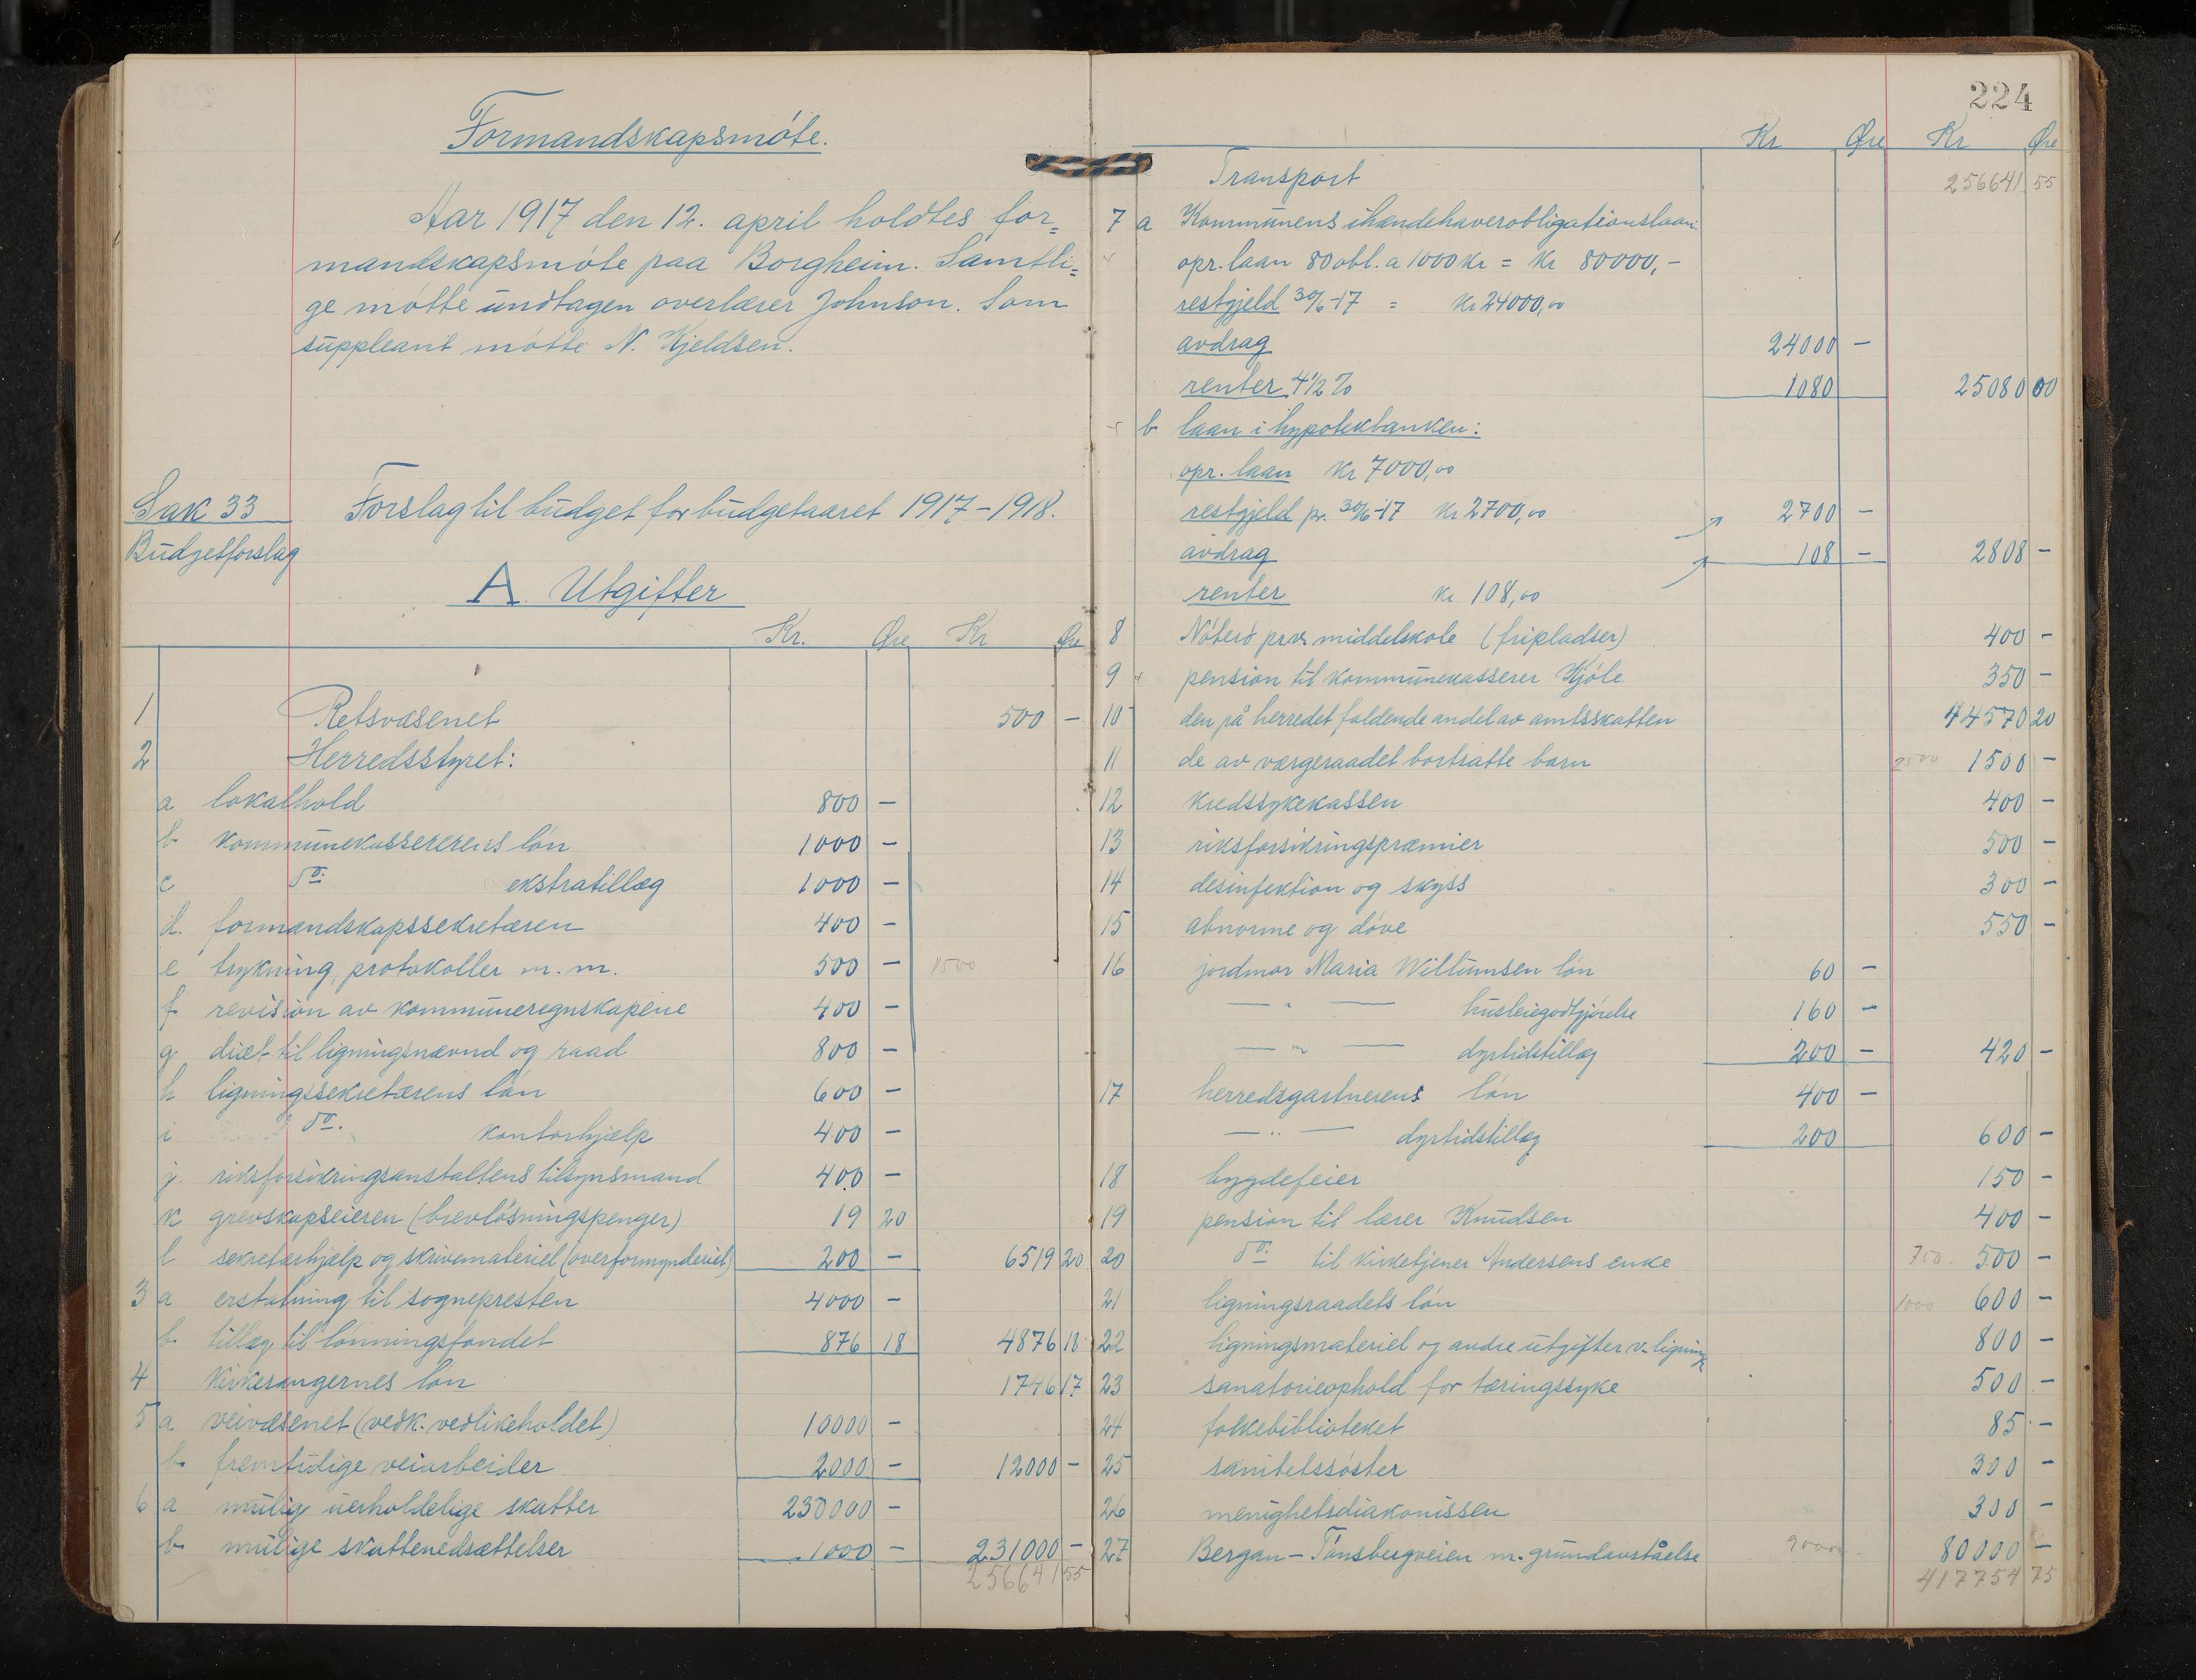 Formandskapsmöte.
Aar 1917 den 12. april holdtes for=
mandskapsmöte paa Borgheim. Samtli=
ge mötte undtagen overlærer Johnson. Som
suppleant mötte N. Kjeldsen.
Sak 33 Forslag til budget for budgetaaret 1917-1918.
Budgetforslag
A. Utgifter
Kr. Øre Kr Øre
1 Retsvæsenet 500 -
2 Herredsstyret:
a lokalhold 800 -
b kommunekassererens lön 1000 -
c do. ekstratillæg 1000 -
d. formandskapssekretæren 400 -
e trykning, protokoller m. m. 500 - 1500
f revision av kommuneregnskapene 400 -
g diæt til ligningsnævnd og raad 800 -
h ligningssekretærens lön 600 -
i do. kontorhjælp 400 -
j. riksforsikringsanstaltens tilsynsmand 400 -
k grevskapseieren (brevlösningspenger) 19 20
l sekretærhjælp og skrivemateriel (overformynderiet) 200 - 6519 20
3 a erstatning til sognepresten 4000 -
b tillæg til lönningsfondet 876 18 4876 18
4 Kirkesangernes lön 1746 17
5 a veivæsenet (vedk. vedlikeholdet) 10000 -
b fremtidige veiarbeider 2000 - 12000 -
6 a mulig uerholdelige skatter 230000 -
b mulige skattenedsættelser 1000 - 231000 -
256641 55
224
Kr Øre Kr Øre
Transport 256641 55
7 a Kommunens ihændehaverobligationslaan:
opr. laan 80 obl. a 1000 kr = kr 80000,-
restgjeld 30/6-17 = kr 24000,00
avdrag 24000 -
renter 4 1/2 % 1080 25080 00
b laan i hypotekbanken:
opr. laan kr 7000,00
restgjeld pr. 30/6-17 kr 2700,00 2700 -
avdrag 108 - 2808 -
renter kr 108,00
8 Nöterö prv. middelskole (fripladser) 400 -
9 pension til kommunekasserer Kjöle 350 -
10 den på herredet faldende andel av amtsskatten 44570 20
11 de av værgeraadet bortsatte barn 2500 1500 -
12 kredssykekassen 400 -
13 riksforsikringspræmier 500 -
14 desinfektion og skyss 300 -
15 abnorme og döve 550 -
16 jordmor Maria Willumsen lön 60 -
— " — husleiegodtgjörelse 160 -
— " — dyrtidstillæg 200 - 420 -
17 herredsgartnerens lön 400 -
— " — dyrtidstillæg 200 600 -
18 bygdefeier 150 -
19 pension til lærer Knudsen 400 -
20 do. til kirketjener Andersens enke 750. 500 -
21 ligningsraadets lön 1000 600 -
22 ligningsmateriel og andre utgifter v. ligning 800 -
23 sanatorieophold for tæringssyke 500 -
24 folkebiblioteket 85 -
25 sanitetssöster 300 -
26 menighetsdiakonissen 300 -
27 Bergan - Tönsbergveien m. grundavståelse 90000 80000 -
417754 75